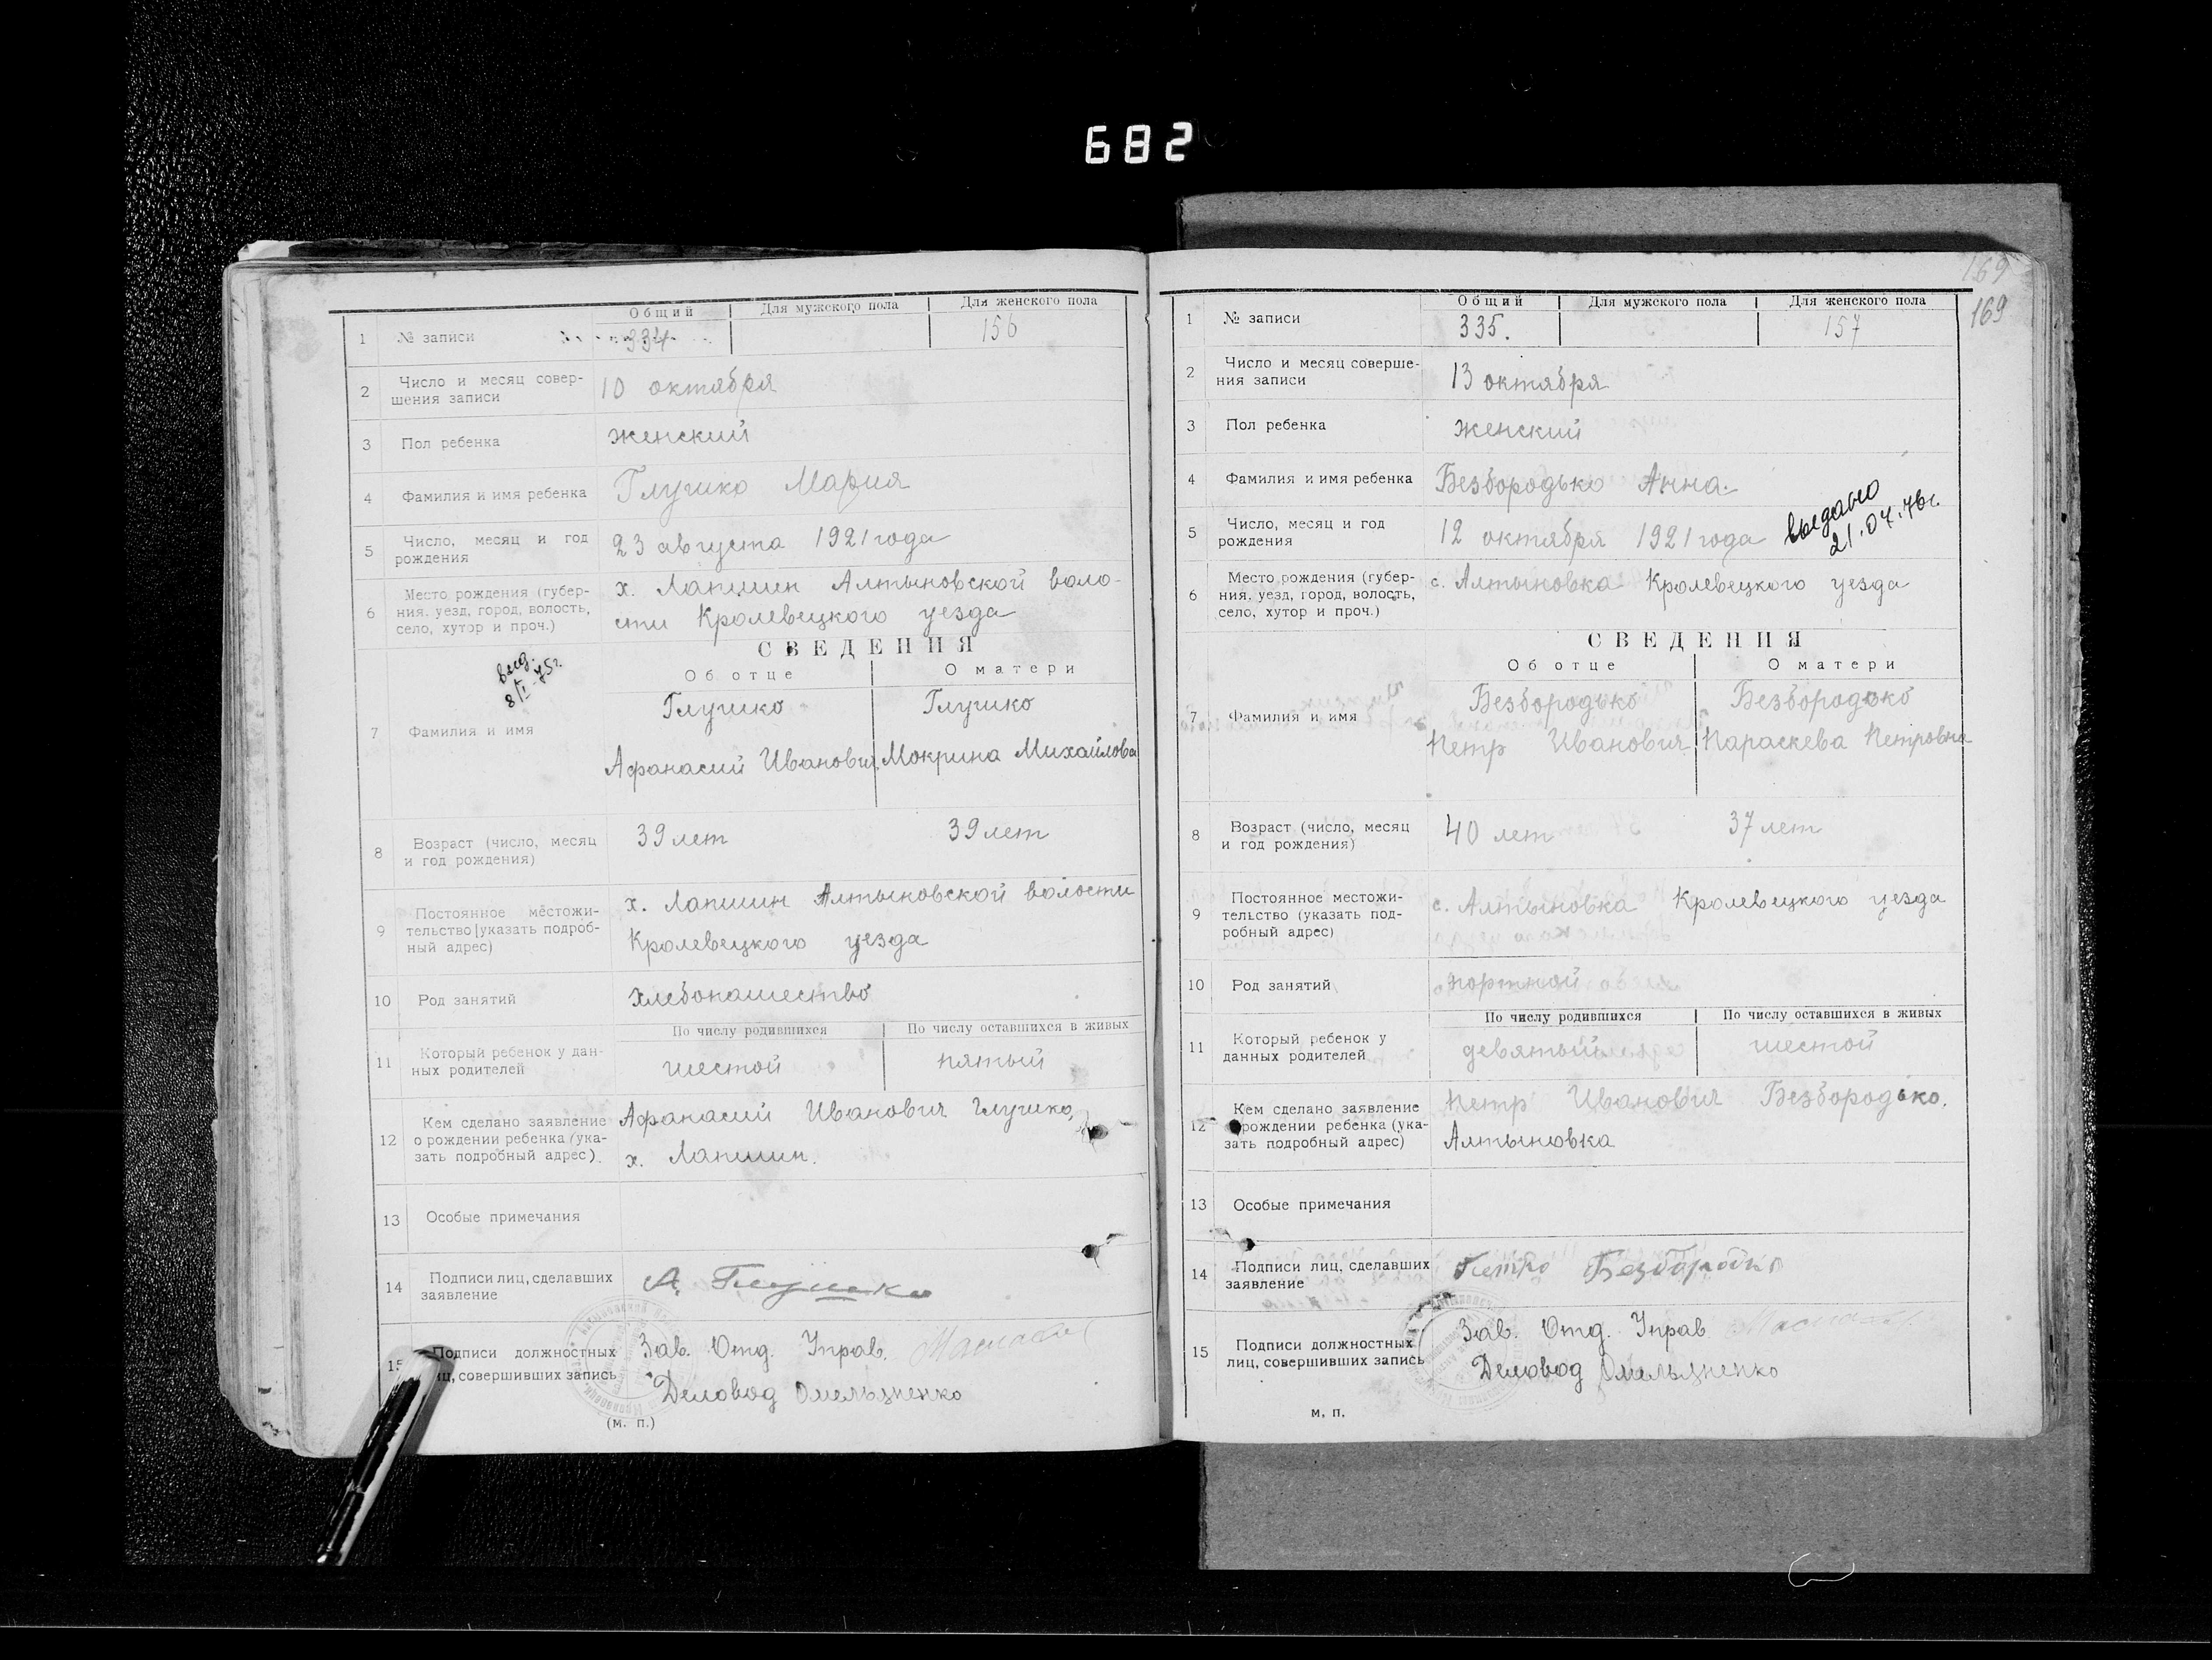 682
Общий Для мужского пола Для женского пола
1 № записи 334 156
2 Число и месяц совер-
шения записи 10 октября
3 Пол ребенка женский
4 Фамилия и имя ребенка Глушко Мария
5 Число, месяц и год
рождения 23 августа 1921 года
6 Место рождения (губер-
ния, уезд, город, волость,
село, хутор и проч.)
х. Лапшин Алтыновской воло-
сти Кролевецкого уезда
СВЕДЕНИЯ
Об отце О матери
выд.
8/I-75г.
7 Фамилия и имя
Глушко Глушко
Афанасий Иванович. Мокрина Михайлова
8 Возраст (число, месяц
и год рождения)
39 лет 39 лет
9 Постоянное местожи-
тельство (указать подроб-
ный адрес)
х. Лапшин Алтыновской волости
Кролевецкого уезда
10 Род занятий хлебопашество
По числу родившихся По числу оставшихся в живых
11 Который ребенок у дан-
ных родителей
шестой пятый
12 Кем сделано заявление
о рождении ребенка (ука-
зать подробный адрес).
Афанасий Иванович Глушко,
х. Лапшин.
13 Особые примечания
14 Подписи лиц, сделавших
заявление
А. Глушко
15 Подписи должностных
лиц, совершивших запись
Зав. Отд. Управ.
Деловод Омельяненко
(м. п.)
169
169
Общий Для мужского пола Для женского пола
1 № записи 335. 157
2 Число и месяц соверше-
ния записи 13 октября
3 Пол ребенка женский
4 Фамилия и имя ребенка Безбородько Анна.
5 Число, месяц и год
рождения 12 октября 1921 года
выдано
21.04.76г.
6 Место рождения (губер-
ния, уезд, город, волость,
село, хутор и проч.)
с. Алтыновка Кролевецкого уезда
СВЕДЕНИЯ
Об отце О матери
7 Фамилия и имя
Безбородько Безбородько
Петр Иванович Параскева Петровна
8 Возраст (число, месяц
и год рождения)
40 лет 37 лет
9 Постоянное местожи-
тельство (указать под-
робный адрес)
с. Алтыновка Кролевецкого уезда
10 Род занятий портной
По числу родившихся По числу оставшихся в живых
11 Который ребенок у
данных родителей
девятый шестой
12 Кем сделано заявление
о рождении ребенка (ука-
зать подробный адрес)
Петр Иванович Безбородько.
Алтыновка
13 Особые примечания
14 Подписи лиц, сделавших
заявление
Петро Безбородько
15 Подписи должностных
лиц, совершивших запись
Зав. Отд. Управ
Деловод Омельяненко
м. п.